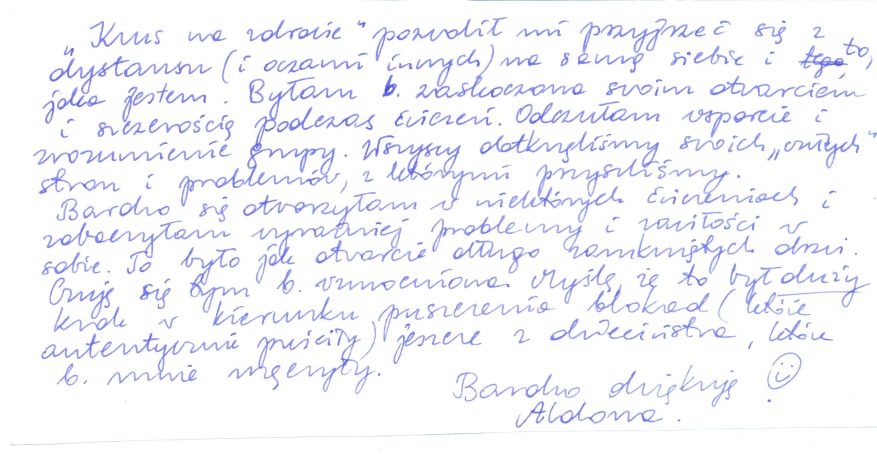 „Kurs na zdrowie" pozwolił mi przyjrzeć się z
dystansu (i oczami innych) na samą siebie i to,
jaka jestem. Byłam b. zaskoczona swoim otwarciem
i szczerością podczas ćwiczeń. Odczułam wsparcie i
zrozumienie grupy. Wszyscy dotknęliśmy swoich „czułych"
stron i problemów, z którymi przyszliśmy.
Bardzo się otworzyłam w niektórych ćwiczeniach i
zobaczyłam wyraźniej problemy i zawiłości w
sobie. To było jak otwarcie długo zamkniętych drzwi.
Czuję się tym b. wzmocniona. Myślę, że to był duży
krok w kierunku puszczenia blokad (które
autentycznie puściły) jeszcze z dzieciństwa, które
b. mnie męczyły.
Bardzo dziękuję
Aldona.